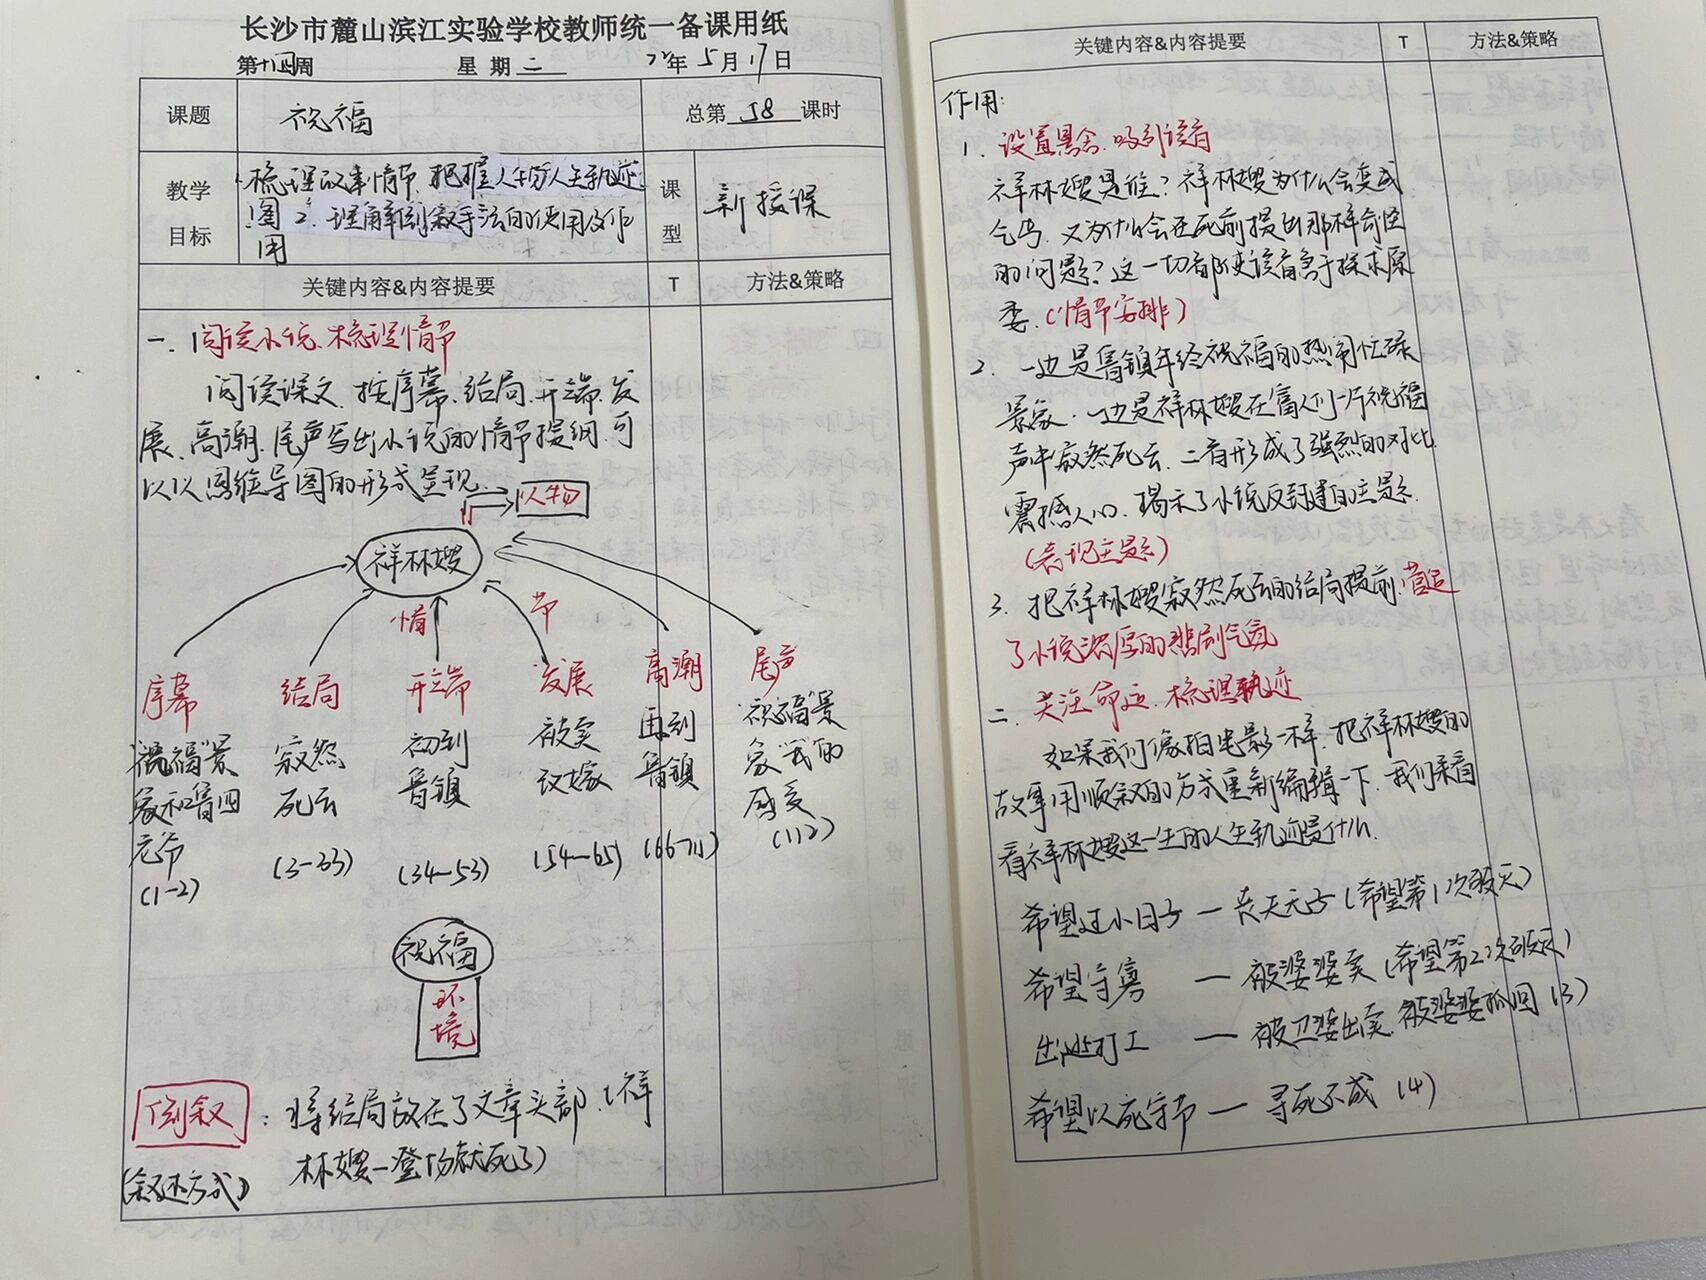 长沙市麓山滨江实验学校教师统一备课用纸
第十四周 星期二 22年5月17日
课题 祝福 总第58课时
教学目标 1.梳理故事情节、把握人物人生轨迹
图 2. 理解倒叙手法的使用及作
用
课型 新授课
关键内容&内容提要 T 方法&策略
一、阅读小说、梳理情节
阅读课文、按序幕、结局、开端、发
展、高潮、尾声写出小说的情节提纲、可
以以思维导图的形式呈现.
人物
祥林嫂
情 节
序幕 结局 开端 发展 高潮 尾声
祝福景象和鲁四老爷 (1-2)
寂然死去 (3-33)
初到鲁镇 (34-53)
被卖改嫁 (54-65)
再到鲁镇 (66-111)
祝福景象"我"的感受 (112)
祝福
环境
倒叙:将结局放在了文章头部.(祥
林嫂一登场就死了)
(叙述方式)
关键内容&内容提要 T 方法&策略
作用:
1. 设置悬念、吸引读者
祥林嫂是谁?祥林嫂为什么会变成
乞丐、又为什么会在死前提出那样奇怪
的问题?这一切都使读者急于探求原
委.(情节安排)
2. 一边是鲁镇年终祝福的热闹忙碌
景象、一边是祥林嫂在富人们一片祝福
声中寂然死去、二者形成了强烈的对比
震撼人心、揭示了小说反封建的主题.
(表现主题)
3. 把祥林嫂寂然死去的结局提前.营造
了小说浓厚的悲剧气氛
二、关注命运、梳理轨迹
如果我们像拍电影一样、把祥林嫂的
故事用顺叙的方式重新编辑一下、我们来看
看祥林嫂这一生的人生轨迹是什么.
希望过小日子 — 丧夫无子(希望第1次破灭)
希望守寡 — 被婆婆卖(希望第2次破灭)
出逃打工 — 被卫婆出卖.被婆婆抓回(3)
希望以死守节 — 寻死不成(4)